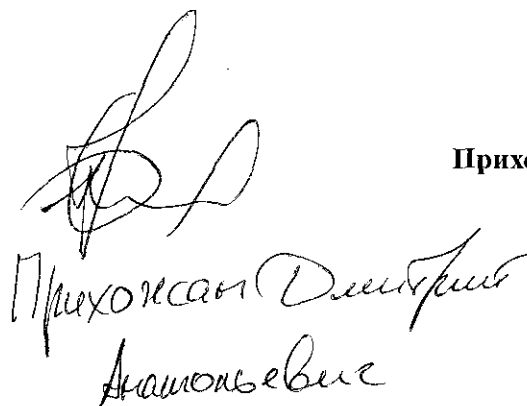 Прихо
Прихожан Дмитрий
Анатольевич